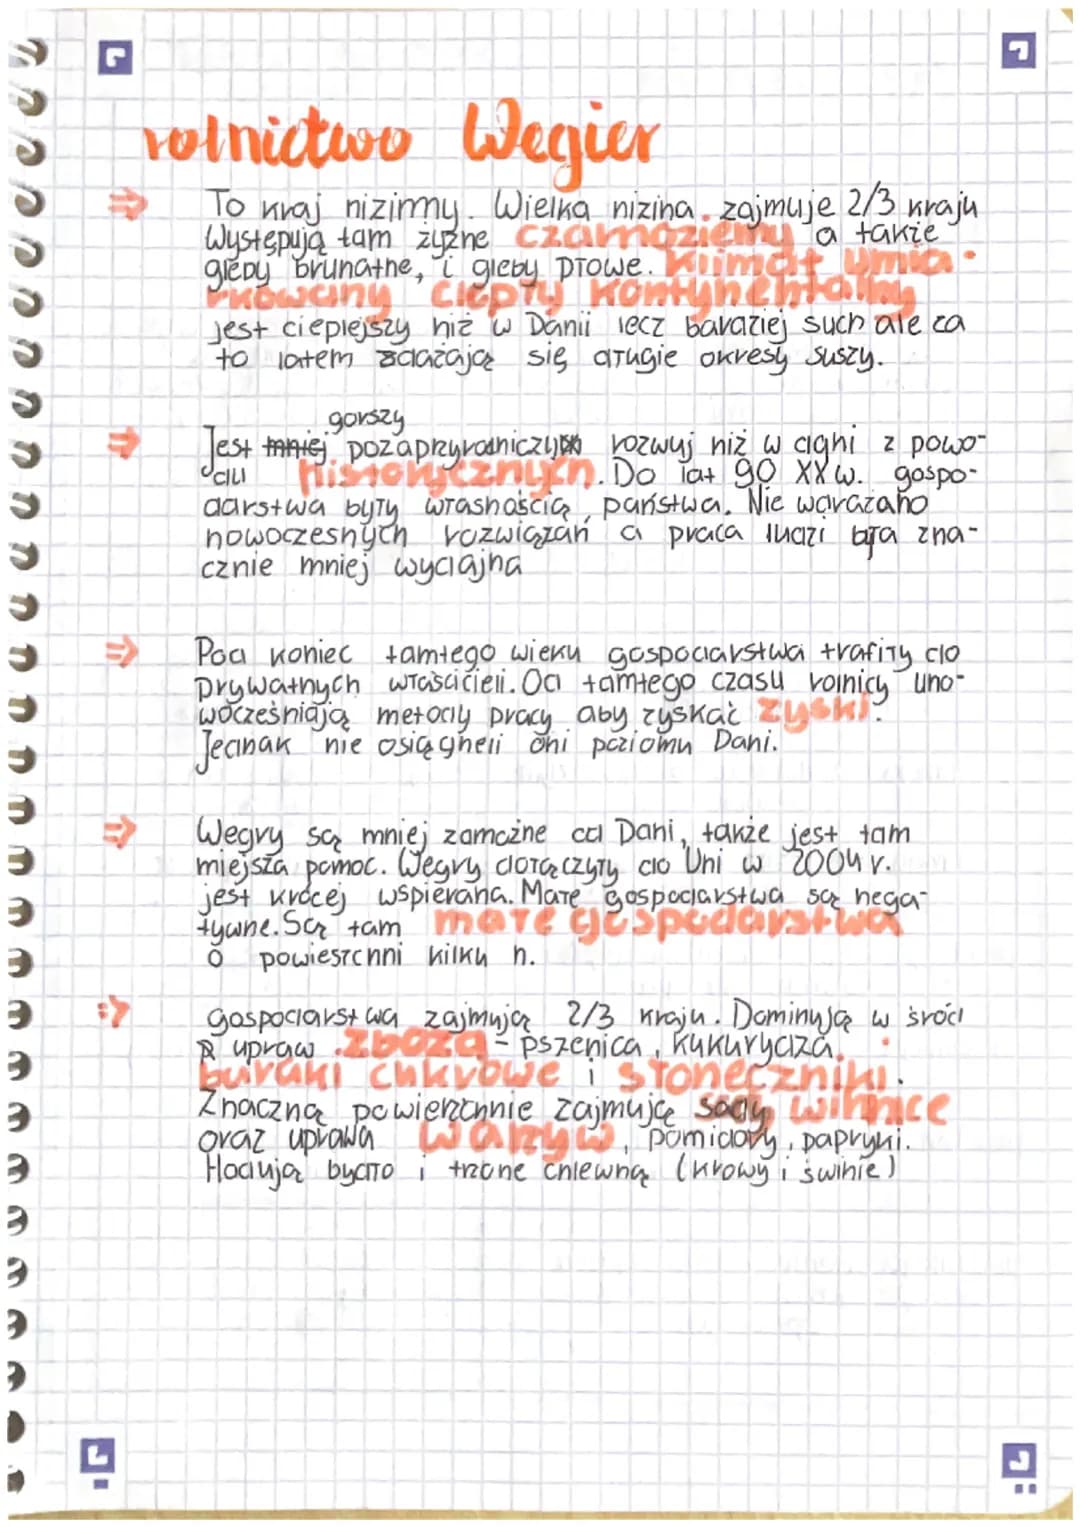 rolnictwo Węgier
To kraj nizinny. Wielka nizina zajmuje 2/3 kraju
Występują tam żyzne czarnoziemy a także
gleby brunatne, i gleby płowe. Klimat umia-
rkowany ciepły kontynentalny
jest cieplejszy niż w Danii lecz bardziej such ale za
to latem zdażają się drugie okresy suszy.
gorszy
Jest mniej pozaprzyrodniczy rozwuj niż w dani z powo-
du historycznych. Do lat 90 XX w. gospo-
darstwa były własnością państwa. Nie wdrażano
nowoczesnych rozwiązań a praca ludzi była zna-
cznie mniej wydajna
Pod koniec tamtego wieku gospodarstwa trafiły do
prywatnych właścicieli. Od tamtego czasu rolnicy uno-
wocześniają metody pracy aby zyskać zyski.
Jednak nie osiągneli oni poziomu Dani.
Węgry są mniej zamożne od Dani, także jest tam
miejsza pomoc. Węgry dołączyły do Uni w 2004 r.
jest krócej wspierana. Małe gospodarstwa są nega-
tywne. Są tam małe gospodarstwa
o powieszchni kilku h.
gospodarstwa zajmują 2/3 kraju. Dominują w śród
upraw zboża - pszenica, kukurydza,
buraki cukrowe i słoneczniki.
Znaczną powierzchnie zajmuję sady, winnice
oraz uprawa warzyw, pomidory, papryki.
Hodują bydło i trzone chlewną (krowy i świnie)